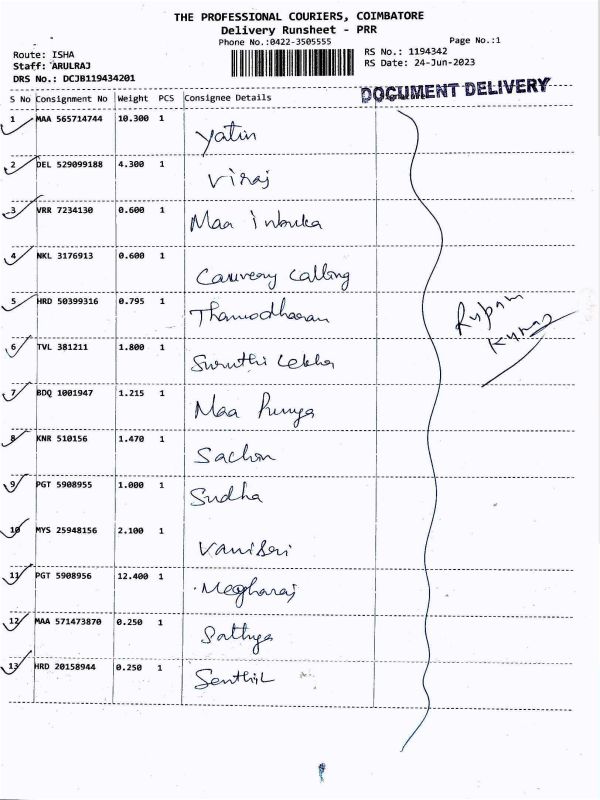 THE PROFESSIONAL COURIERS, COIMBATORE
Delivery Runsheet - PRR
Phone No.:0422-3505555 Page No.:1
Route: ISHA RS No.: 1194342
Staff: ARULRAJ RS Date: 24-Jun-2023
DRS No.: DCJB119434201
DOCUMENT DELIVERY
S No Consignment No Weight PCS Consignee Details
1 MAA 565714744 10.300 1 Yatin
2 DEL 529099188 4.300 1 Viraj
3 VRR 7234130 0.600 1 Maa
4 NKL 3176913 0.600 1 Cauvery Calling
5 HRD 50399316 0.795 1 Thamodharan
6 TVL 381211 1.800 1 Suruthi Lekha
7 BDQ 1001947 1.215 1 Maa Punya
8 KNR 510156 1.470 1 Sachin
9 PGT 5908955 1.000 1 Sudha
10 MYS 25948156 2.100 1 VaniSri
11 PGT 5908956 12.400 1 Megharaj
12 MAA 571473870 0.250 1 Sathya
13 HRD 20158944 0.250 1 Senthil
Rupam
Kumar